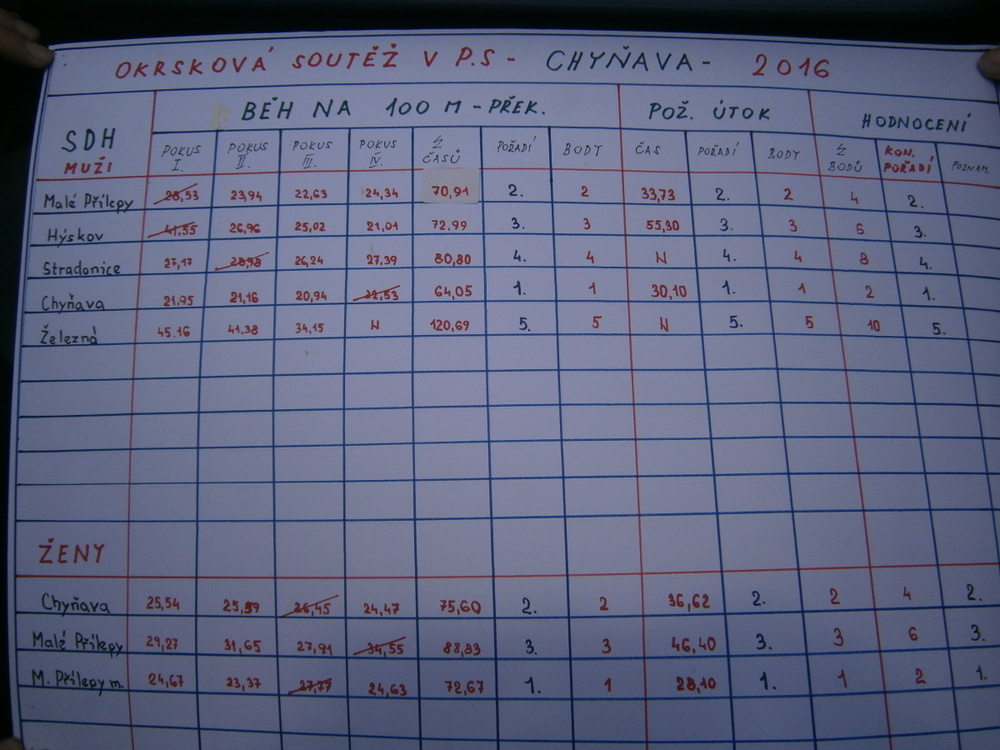 OKRSKOVÁ SOUTĚŽ V P.S - CHYŇAVA - 2016
SDH MUŽI BĚH NA 100 M - PŘEK. POŽ. ÚTOK HODNOCENÍ
POKUS I. POKUS II. POKUS III. POKUS IV. Σ ČASŮ POŘADÍ BODY ČAS POŘADÍ BODY Σ BODŮ KON. POŘADÍ POZNAM.
Malé Přílepy 28,53 23,94 22,63 24,34 70,91 2. 2 33,73 2. 2 4 2.
Hýskov 41,55 26,96 25,02 21,01 72,99 3. 3 55,30 3. 3 6 3.
Stradonice 27,17 28,98 26,24 27,39 80,80 4. 4 N 4. 4 8 4.
Chyňava 21,95 21,16 20,94 22,53 64,05 1. 1 30,10 1. 1 2 1.
Železná 45,16 41,38 34,15 N 120,69 5. 5 N 5. 5 10 5.
ŽENY
Chyňava 25,54 25,59 26,45 24,47 75,60 2. 2 36,62 2. 2 4 2.
Malé Přílepy 29,27 31,65 27,91 34,55 88,83 3. 3 46,40 3. 3 6 3.
M. Přílepy m. 24,67 23,37 27,77 24,63 72,67 1. 1 28,10 1. 1 2 1.